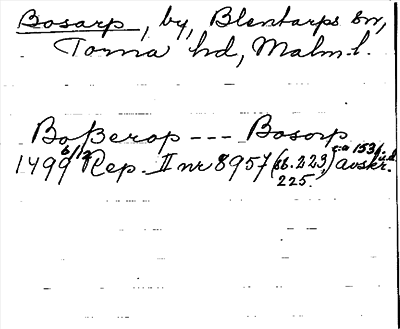 Bosarp, by, Blentarps sn,
Torna hd, Malm. l.
Boßerop --- Bosorp
1499 6/12 Rep. II nr 8957 (ss. 223, 225.) avskr. c:a 1530